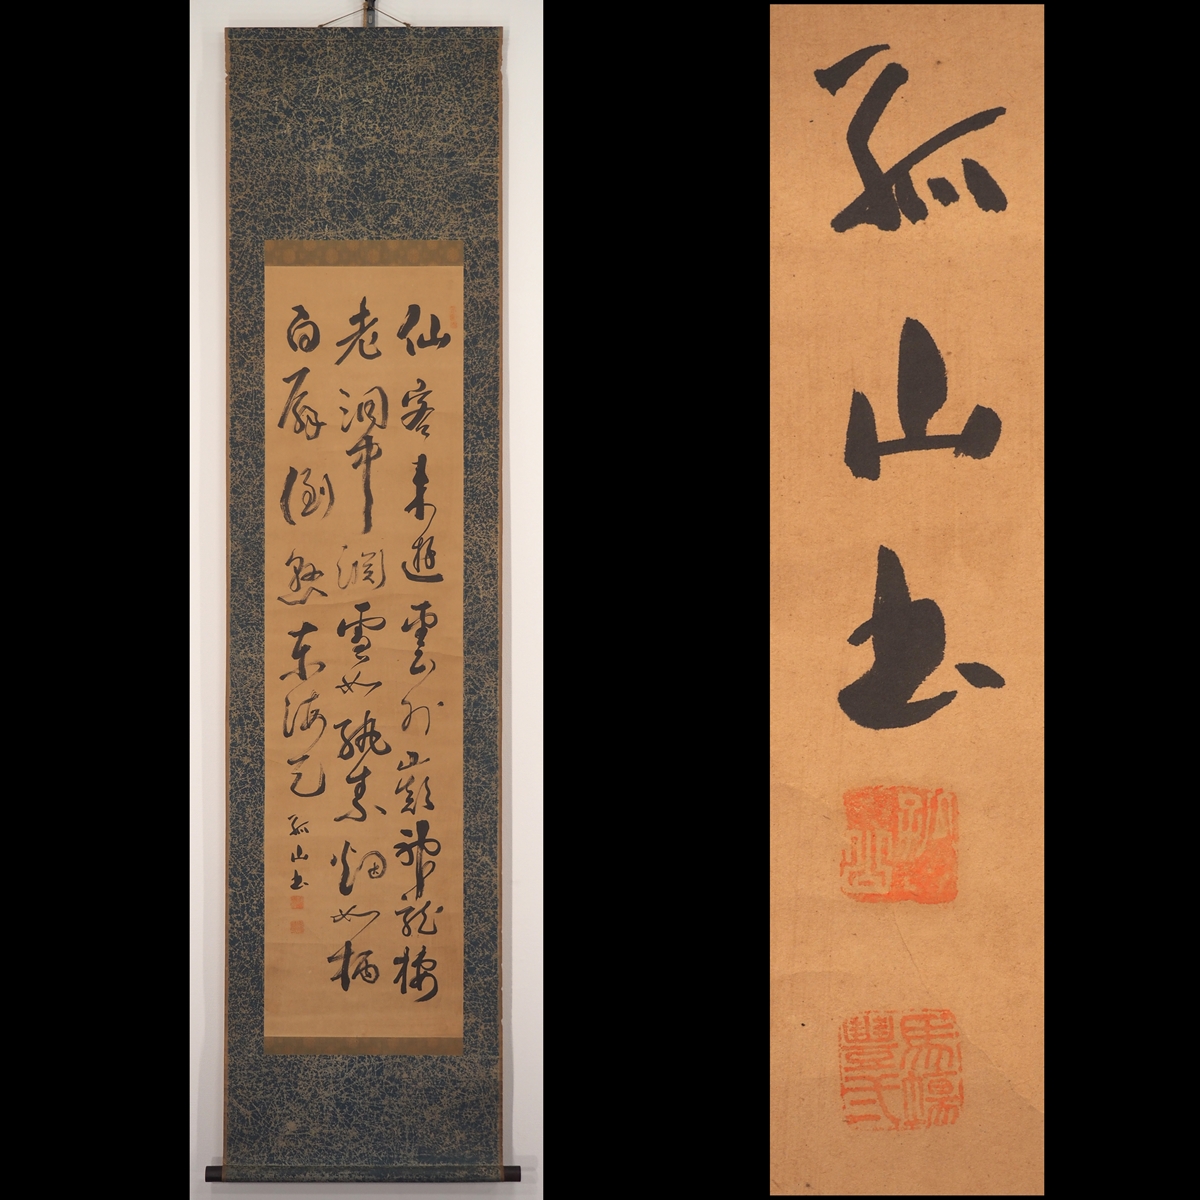 仙客来遊雲外巓神龍棲
老洞中淵雪如紈素烟如柄
白扇倒懸東海天
孤山書
孤山書